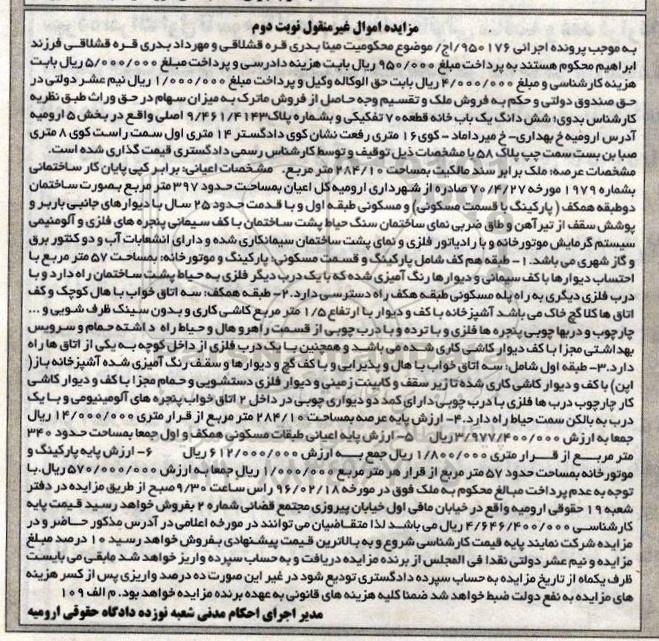 مزایده اموال غیرمنقول نوبت دوم
به موجب پرونده اجرائی ۹۵۰۱۷۶/اج/ موضوع محکومیت مینا بدری قره قشلاقی و مهرداد بدری قره قشلاقی فرزند
ابراهیم محکوم هستند به پرداخت مبلغ ۹۵۰/۰۰۰ ریال بابت هزینه دادرسی و پرداخت مبلغ ۵/۰۰۰/۰۰۰ ریال بابت
هزینه کارشناسی و مبلغ ۴/۰۰۰/۰۰۰ ریال بابت حق الوکاله وکیل و پرداخت مبلغ ۱/۰۰۰/۰۰۰ ریال نیم عشر دولتی در
حق صندوق دولتی و حکم به فروش ملک و تقسیم وجه حاصل از فروش ماترک به میزان سهام در حق وراث طبق نظریه
کارشناس بدوی؛ شش دانگ یک باب خانه قطعه ۷۰ تفکیکی و بشماره پلاک ۹/۴۶۱/۴۱۴۳ اصلی واقع در بخش ۵ ارومیه
آدرس ارومیه خ بهداری- خ میرداماد - کوی ۱۶ متری رفعت نشان کوی دادگستر ۱۴ متری اول سمت راست کوی ۸ متری
صبا بن بست سمت چپ پلاک ۵۸ با مشخصات ذیل توقیف و توسط کارشناس رسمی دادگستری قیمت گذاری شده است.
مشخصات عرصه: ملک برابر سند مالکیت بمساحت ۲۸۴/۱۰ متر مربع. مشخصات اعیانی: برابر کپی پایان کار ساختمانی
بشماره ۱۹۷۹ مورخه ۷۰/۴/۲۷ صادره از شهرداری ارومیه کل اعیان بمساحت حدود ۳۹۷ متر مربع بصورت ساختمان
دوطبقه همکف (پارکینگ با قسمت مسکونی) و مسکونی طبقه اول و با قدمت حدود ۲۵ سال با دیوارهای جانبی باربر و
پوشش سقف از تیرآهن و طاق ضربی نمای ساختمان سنگ حیاط پشت ساختمان با کف سیمانی پنجره های فلزی و آلومنیمی
سیستم گرمایش موتورخانه و با رادیاتور فلزی و نمای پشت ساختمان سیمانکاری شده و دارای انشعابات آب و دو کنتور برق
و گاز شهری می باشد.۱- طبقه هم کف شامل پارکینگ و قسمت مسکونی: پارکینگ و موتورخانه: بمساحت ۵۷ متر مربع با
احتساب دیوارها با کف سیمانی و دیوارها رنگ آمیزی شده که با یک درب دیگر فلزی به حیاط پشت ساختمان راه دارد و با
درب فلزی دیگری به راه پله مسکونی طبقه هکف راه دسترسی دارد.۲- طبقه همکف: سه اتاق خواب با هال کوچک و کف
اتاق ها کلا گچ خاک می باشد آشپزخانه با کف و دیوار با ارتفاع ۱/۵ متر مربع کاشی کاری و بدون سینک ظرف شویی و ...
چارچوب و دربها چوبی پنجره ها فلزی و با نرده و با درب چوبی از قسمت راهرو هال و حیاط راه داشته حمام و سرویس
بهداشتی مجزا با کف دیوار کاشی کاری شده می باشد و همچنین با یک درب فلزی از داخل کوچه به یکی از اتاق ها راه
دارد.۳- طبقه اول شامل: سه اتاق خواب با هال و پذیرایی و با کف گچ و دیوارها و سقف رنگ آمیزی شده آشپزخانه باز(
اپن) با کف و دیوار کاشی کاری شده تا زیر سقف و کابینت زمینی و دیوار فلزی دستشویی و حمام مجزا با کف و دیوار کاشی
کار چارچوب درب ها فلزی با درب چوبی دارای کمد دو دیواری چوبی در داخل ۲ اتاق خواب پنجره های آلومینیومی و با یک
درب به بالکن سمت حیاط راه دارد.۴- ارزش پایه عرصه بمساحت ۲۸۴/۱۰ متر مربع از قرار متری ۱۴/۰۰۰/۰۰۰ ریال
جمعا به ارزش ۳/۹۷۷/۴۰۰/۰۰۰ریال ۵- ارزش پایه اعیانی طبقات مسکونی همکف و اول جمعا بمساحت حدود ۳۴۰
متر مربع از قرار متری ۱/۸۰۰/۰۰۰ ریال جمع به ارزش ۶۱۲/۰۰۰/۰۰۰ ریال ۶- ارزش پایه پارکینگ و
موتورخانه بمساحت حدود ۵۷ متر مربع از قرار هر متر مربع ۱/۰۰۰/۰۰۰ ریال جمعا به ارزش ۵۷۰/۰۰۰/۰۰۰ ریال.با
توجه به عدم پرداخت مبالغ محکوم به ملک فوق در مورخه ۹۶/۰۲/۱۸ راس ساعت ۹/۳۰ صبح از طریق مزایده در دفتر
شعبه ۱۹ حقوقی ارومیه واقع در خیابان مافی اول خیابان پیروزی مجتمع قضائی شماره ۲ بفروش خواهد رسید قیمت پایه
کارشناسی ۴/۶۴۶/۴۰۰/۰۰۰ ریال می باشد لذا متقاضیان می توانند در مورخه اعلامی در آدرس مذکور حاضر و در
مزایده شرکت نمایند پایه قیمت کارشناسی شروع و به بالاترین قیمت پیشنهادی بفروش خواهد رسید ۱۰ درصد مبلغ
مزایده و نیم عشر دولتی نقدا فی المجلس از برنده مزایده دریافت و به حساب سپرده واریز خواهد شد مابقی می بایست
ظرف یکماه از تاریخ مزایده به حساب سپرده دادگستری تودیع شود در غیر این صورت ده درصد واریزی پس از کسر هزینه
های مزایده به نفع دولت ضبط خواهد شد ضمنا کلیه هزینه های قانونی به عهده برنده مزایده خواهد بود. م الف ۱۰۹
مدیر اجرای احکام مدنی شعبه نوزده دادگاه حقوقی ارومیه